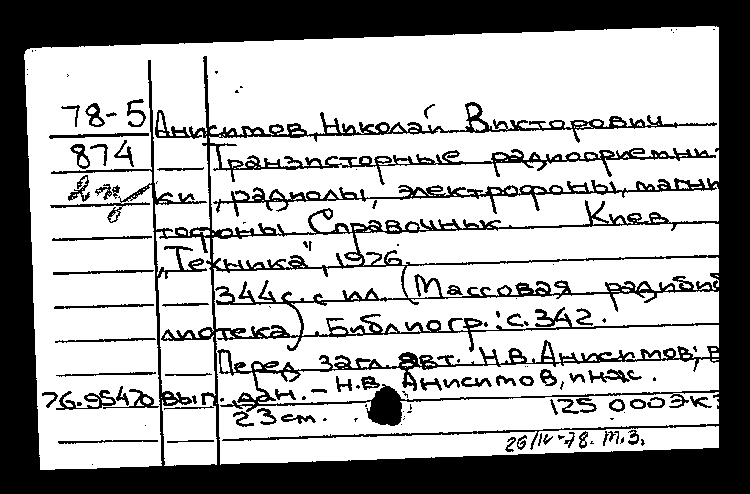 78-5 Анисимов, Николай Викторович.
874 Транзисторные радиоприемни-
ки, радиолы, электрофоны, магни
тофоны Справочник. Киев,
„Техника", 1976.
344 с. с ил. (Массовая радибиб
лиотека). Библиогр.: с. 342.
Перед загл. авт. Н.В. Анисимов; в
76.95470 вып. дан. – Н.В. Анисимов, инж.
23 см. 125 000 экз
26/IV-78. т.з.